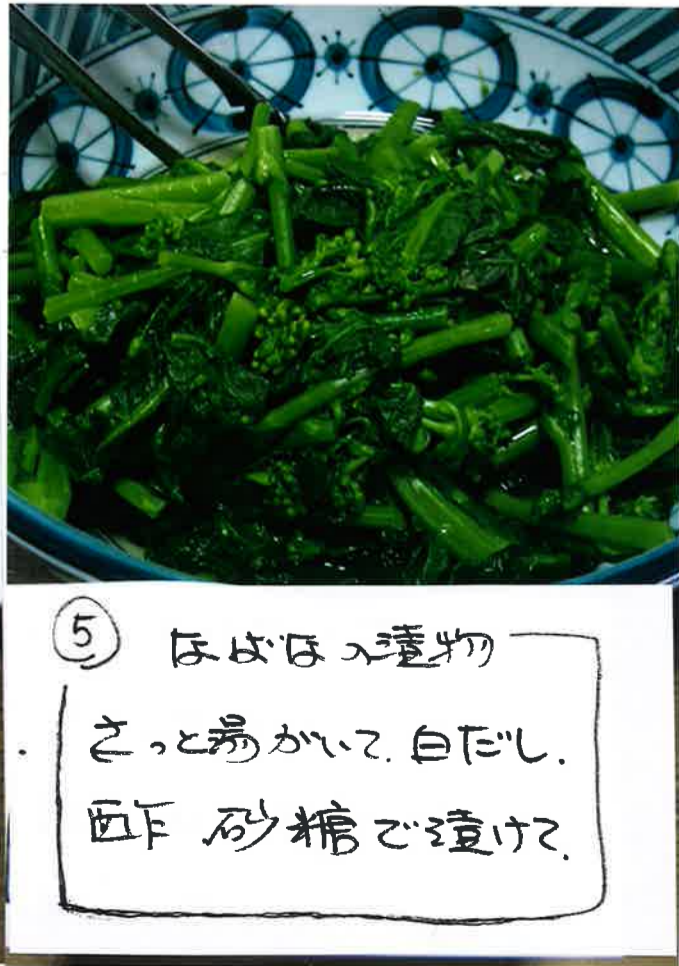 ⑤ なばなの漬物
さっと湯がいて.白だし.
酢 砂糖で漬けて.